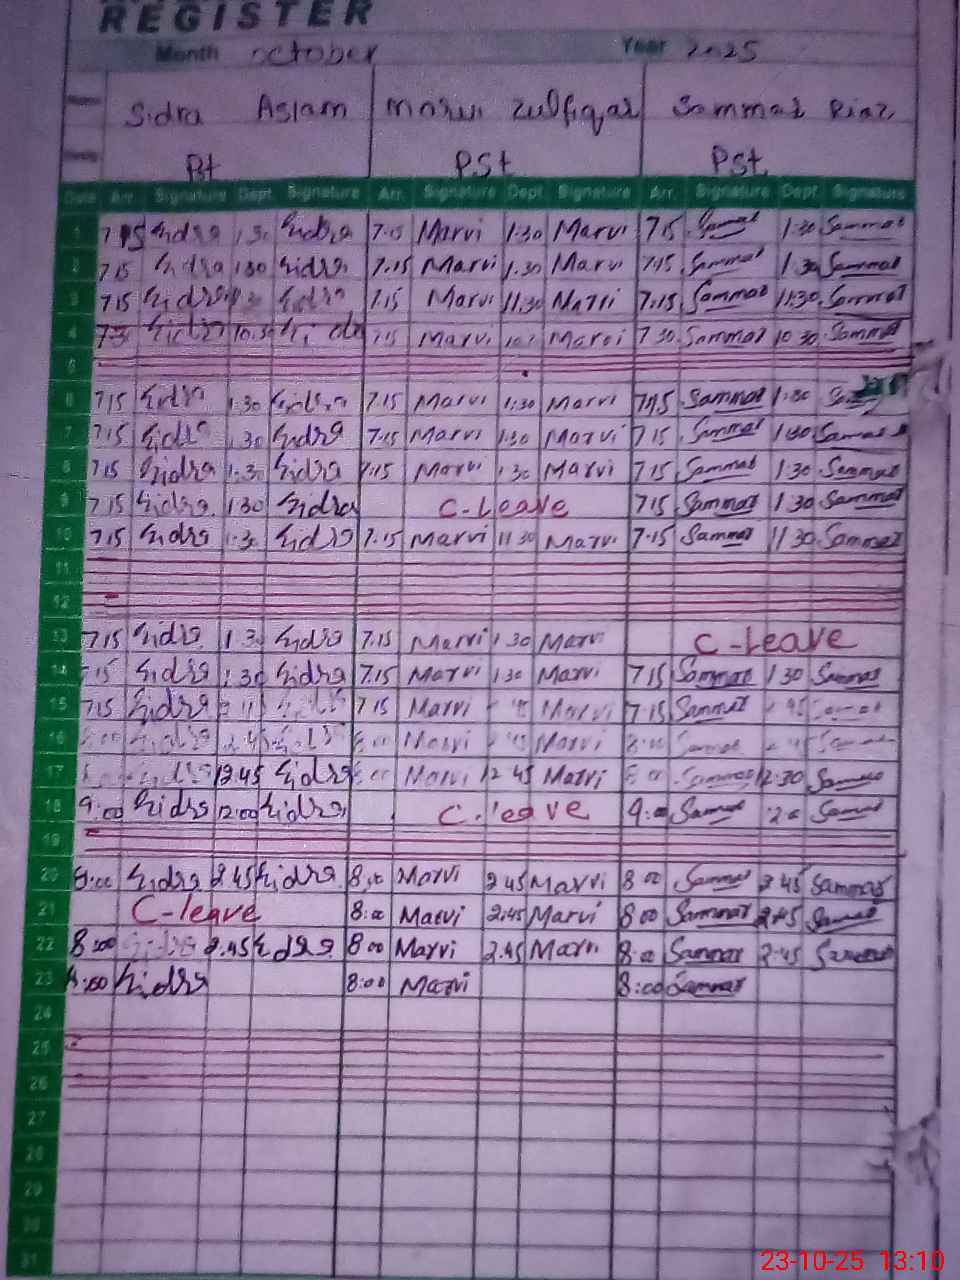 REGISTER
Month October Year 2025
Name Sidra Aslam Marvi Zulfiqar Sammat Riaz
Pst PSt PSt
Date Arr. Signature Dept Signature Arr. Signature Dept Signature Arr. Signature Dept Signature
1 715 Sidra 1 30 Sidra 7.15 Marvi 1:30 Marvi 715 Sammat 1:30 Sammat
2 715 Sidra 130 Sidra 7.15 Marvi 1.30 Marvi 715 Sammat 1.30 Sammat
3 715 Sidra Sidra 7.15 Marvi 11.30 Marvi 7:15 Sammat 11:30 Sammat
4 Sidra 10.30 Marvi Marvi 7 30 Sammat 10 30 Sammat
5
6 715 Sidra 1:30 Sidra 7.15 Marvi 1:30 Marvi 715 Sammat 1:30
7 715 Sidra 1.30 Sidra 7.15 Marvi 1:30 Marvi 715 Sammat 1:30 Sammat
8 715 Sidra 1.30 Sidra 7.15 Marvi 1 30 Marvi 715 Sammat 1:30 Sammat
9 715 Sidra 130 Sidra C-Leave 715 Sammat 1 30 Sammat
10 715 Sidra 1:30 Sidra 7.15 Marvi 11 30 Marvi 7.15 Sammat 11 30 Sammat
11
12
13 715 Sidra 1 30 Sidra 7.15 Marvi 1 30 Marvi C-Leave
14 715 Sidra 1:30 Sidra 7.15 Marvi 1 30 Marvi 715 Sammat 1 30 Sammat
15 715 Sidra 715 Marvi Marvi 7:15 Sammat
16 Marvi Marvi 8:00 Sammat
17 12.45 Sidra Marvi 12 45 Marvi Sammat 12.30 Sammat
18 9:00 Sidra 12:00 Sidra C.leave 9:00 Sammat Sammat
19
20 8:00 Sidra 2 45 Sidra 8:00 Marvi 2 45 Marvi 8 00 Sammat 2 45 Sammat
21 C-leave 8:00 Marvi 2:45 Marvi 8 00 Sammat 2:45 Sammat
22 8:00 2.45 Sidra 8 00 Marvi 2.45 Marvi 8:00 Sammat 2:45 Sammat
23 8:00 Sidra 8:00 Marvi 8:00 Sammat
24
25
26
27
28
29
30
31
23-10-25 13:10